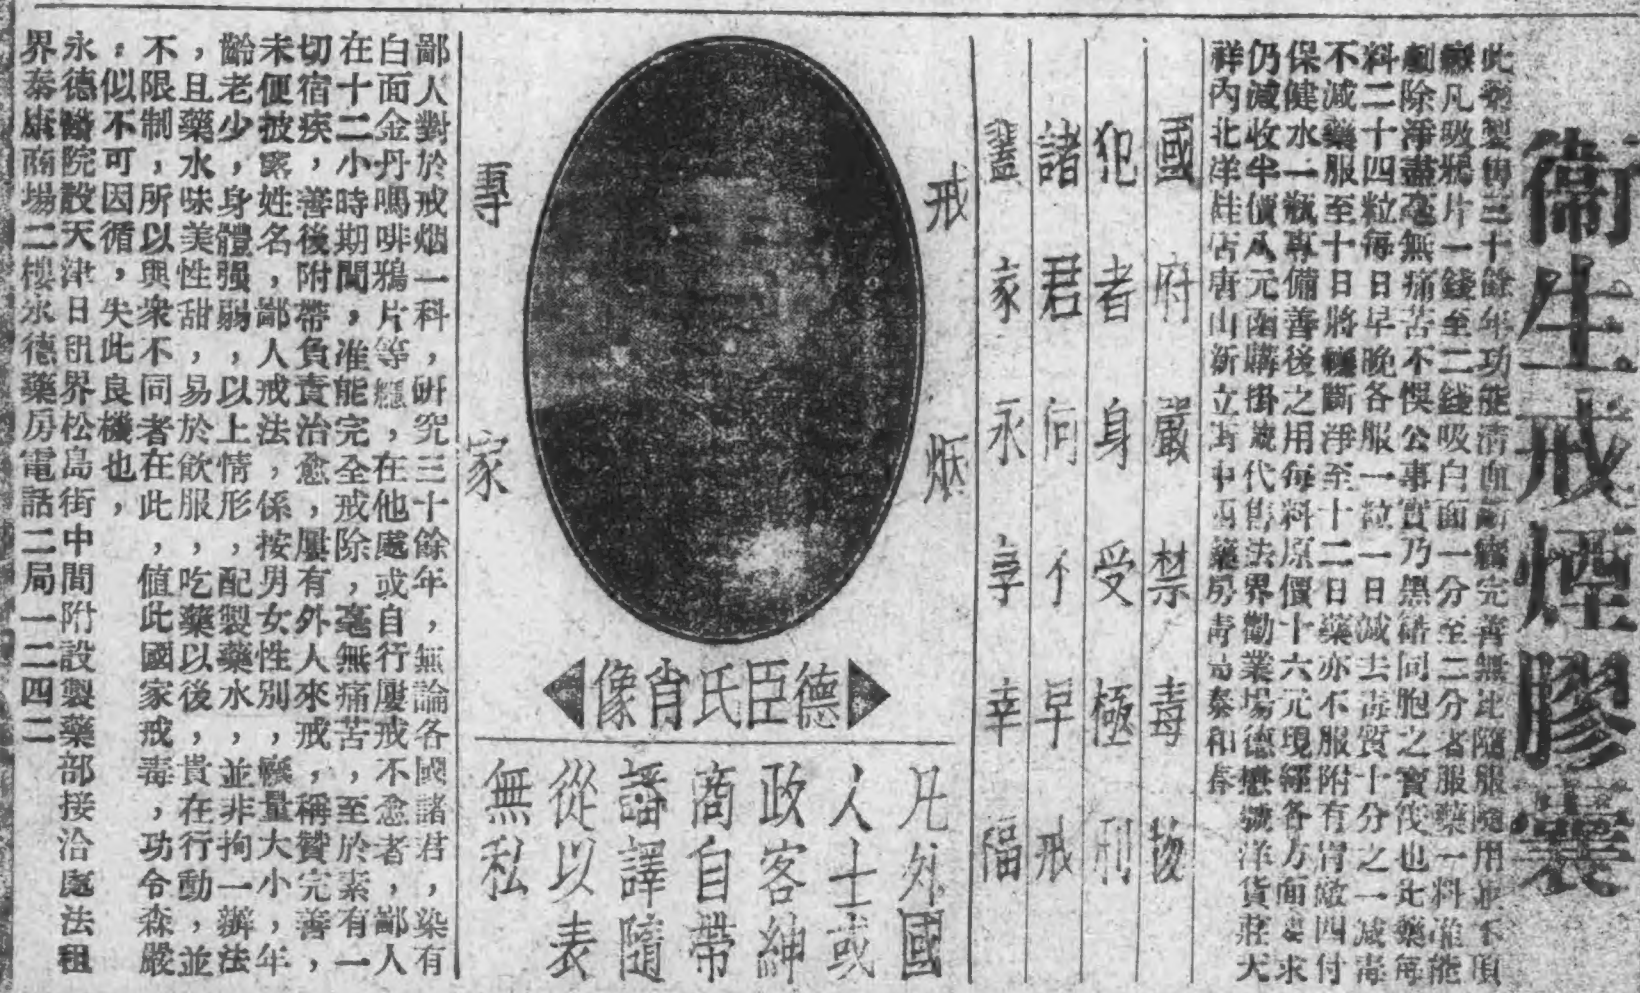 衞生戒煙膠囊
此藥製售三十餘年功能清血
癮凡吸鴉片一錢至二錢吸白面一分至二分者服藥一料准能
剷除淨盡毫無痛苦不悞公事實乃黑籍同胞之寶筏也此藥每
料二十四粒每日早晚各服一粒一日減去毒質十分之一减毒
不减藥服至十日將癮斷淨至十二日藥亦不服附有胃敵四付
保健水一瓶專備善後之用每料原價十六元現經各方面要求
仍減收半價八元函購掛號代售法界勸業場德懋號洋貨莊天
祥內北洋鞋店唐山新立街中西藥房靑島泰和春
國府嚴禁毒物
犯者身受極刑
諸君何不早戒
闔家永享幸福
戒烟
專家
德臣氏肖像
凡外國
人士或
政客紳
商自帶
譒譯隨
從以表
無私
鄙人對於戒烟一科，硏究三十餘年，無論各國諸君，染有
白面金丹嗎啡鴉片等癮，在他處或自行屢戒不愈者，鄙人
在十二小時期間，准能完全戒除，毫無痛苦，至於素有一
切宿疾，善後附帶負責治愈，屢有外人來戒，稱贊完善，
未便披露姓名，鄙人戒法，係按男女性別，癮量大小，年
齡老少，身體强弱，以上情形，配製藥水，並非拘一辦法
，且藥水味美性甜，易於飲服，吃藥以後，貴在行動，並
不限制，所以與衆不同者在此，値此國家戒毒，功令森嚴
，似不可因循，失此良機也，
永德醫院設天津日租界松島街中間附設製藥部接洽處法租
界泰康商場二樓永德藥房電話二局一二四二